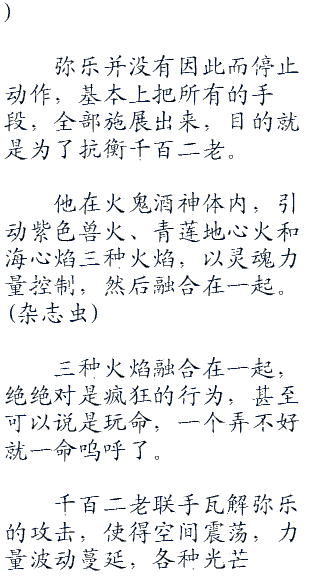 )
弥乐并没有因此而停止
动作，基本上把所有的手
段，全部施展出来，目的就
是为了抗衡千百二老。
他在火鬼酒神体内，引
动紫色兽火、青莲地心火和
海心焰三种火焰，以灵魂力
量控制，然后融合在一起。
(杂志虫)
三种火焰融合在一起，
绝绝对是疯狂的行为，甚至
可以说是玩命，一个弄不好
就一命呜呼了。
千百二老联手瓦解弥乐
的攻击，使得空间震荡，力
量波动蔓延，各种光芒